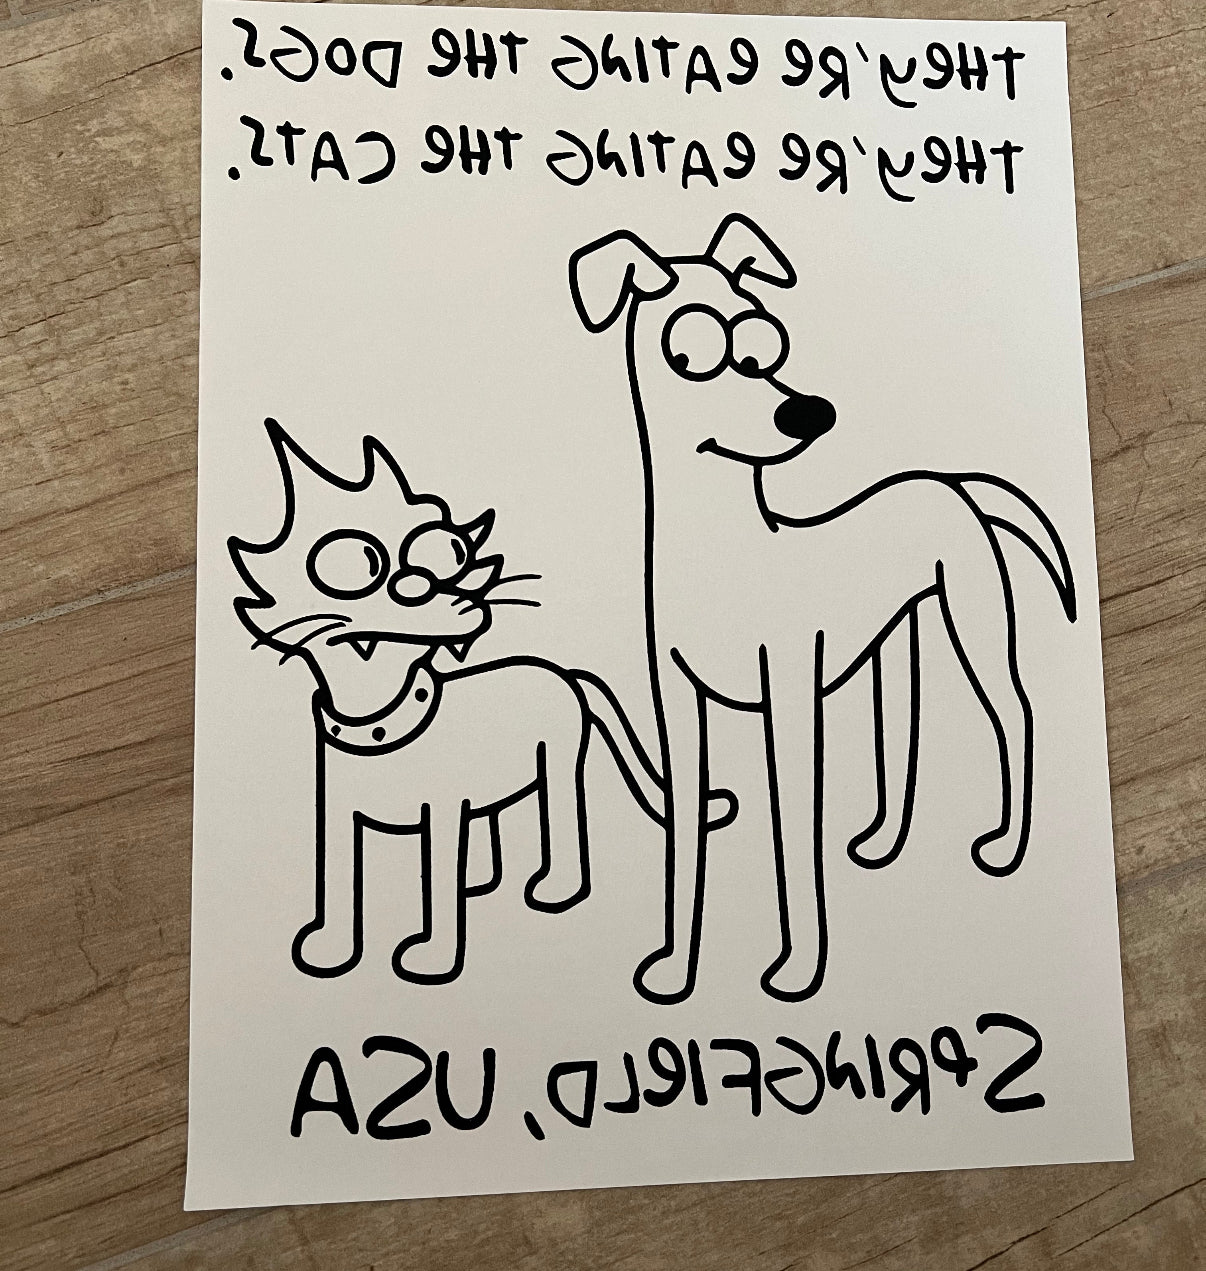 THEY'RE EATING THE DOGS.
THEY'RE EATING THE CATS.
SPRINGFIELD, USA